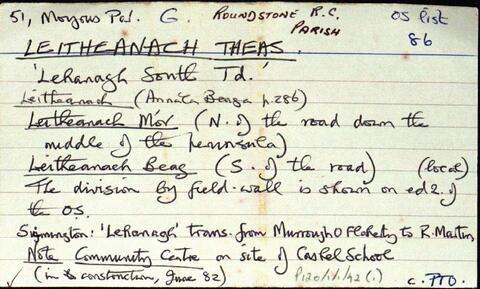 51, Moyrus Par. G. ROUNDSTONE R.C. PARISH OS list 86
LEITHEANACH THEAS.
'Lehanagh South Td.'
Leitheanach (Annála Beaga p.286)
Leitheanach Mór (N. of the road down the
middle of the peninsula)
Leitheanach Beag (S. of the road) (local)
The division by field-wall is shown on ed 2. of
the OS.
Symington: 'Lehanagh' trans. from Murrough O Flaherty to R. Martin,
Note Community Centre on site of Cashel School
(in construction, June '82) P120/1/1/42 (1) c. PTO.